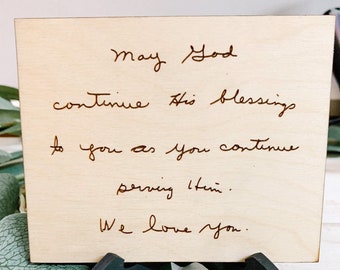 May God
continue His blessings
to you as you continue
serving Him.
We love you.